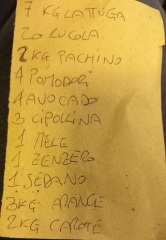 7 KG LATTUGA
20 RUCOLA
2 KG PACHINO
4 POMODORI
4 AVOCADO
3 CIPOLLINA
1 MELE
1 ZENZERO
1 SEDANO
3KG ARANGE
2KG CAROTE